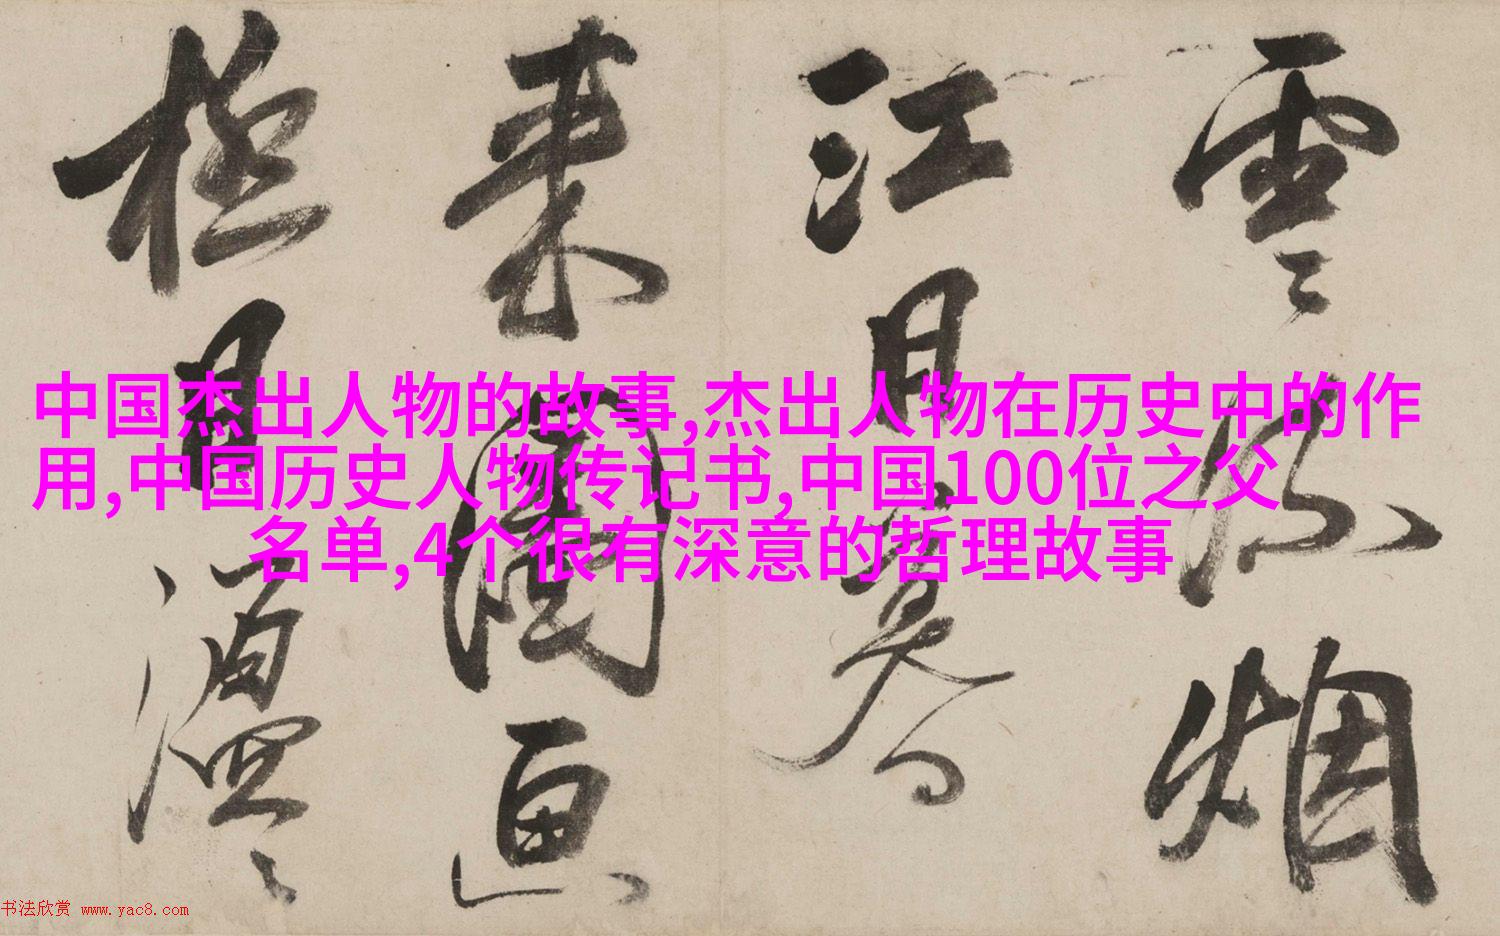 雲烟
江
来画
極目
中国杰出人物的故事,杰出人物在历史中的作
用,中国历史人物传记书,中国100位之父
名单,4个很有深意的哲理故事
书法欣赏 www.yac8.com